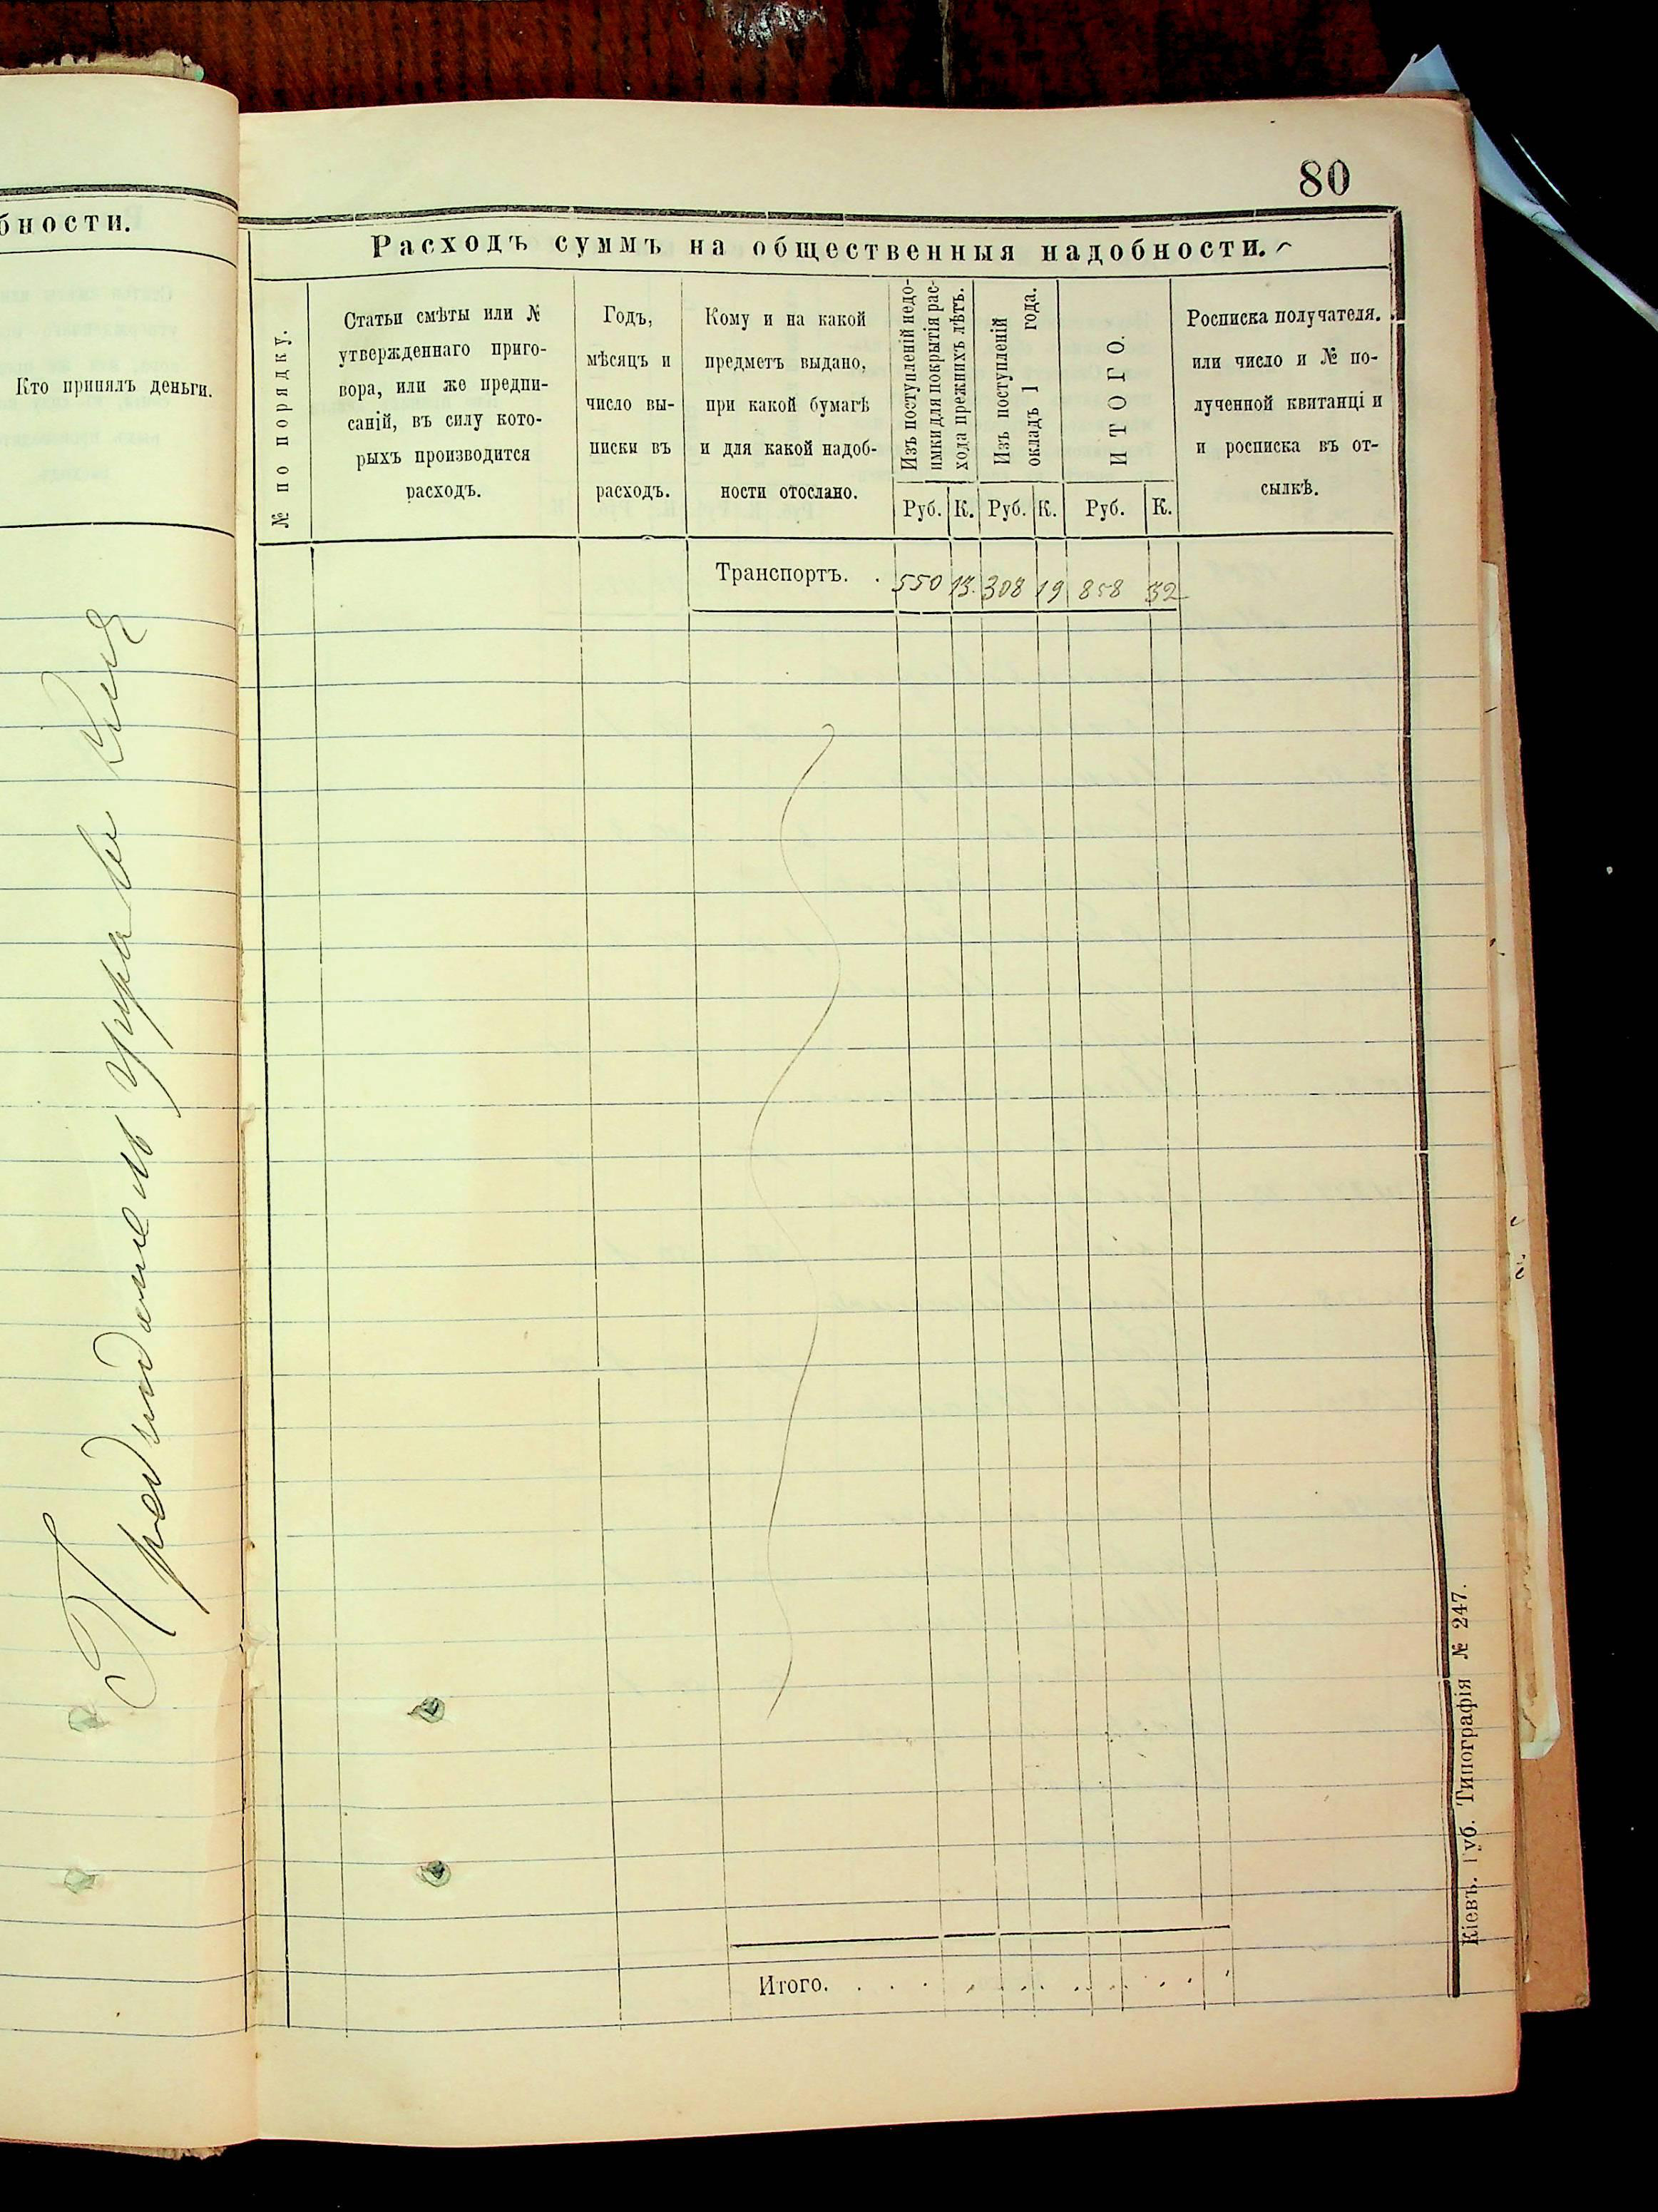 80
бности.
Кто принялъ деньги.
Расходъ суммъ на общественныя надобности.
№ по порядку.
Статьи смѣты или №
утвержденнаго приго-
вора, или же предпи-
саній, въ силу кото-
рыхъ производится
расходъ.
Годъ,
мѣсяцъ и
число вы-
писки въ
расходъ.
Кому и на какой
предметъ выдано,
при какой бумагѣ
и для какой надоб-
ности отослано.
Изъ поступленій недо-
имки для покрытія рас-
хода прежнихъ лѣтъ.
Изъ поступленій
окладъ 1 года.
ИТОГО.
Росписка получателя.
или число и № по-
лученной квитанціи
и росписка въ от-
сылкѣ.
Руб. К. Руб. К. Руб. К.
Транспортъ. . 550 13. 308 19 858 32
Итого.
Кіевъ. Губ. Типографія № 247.